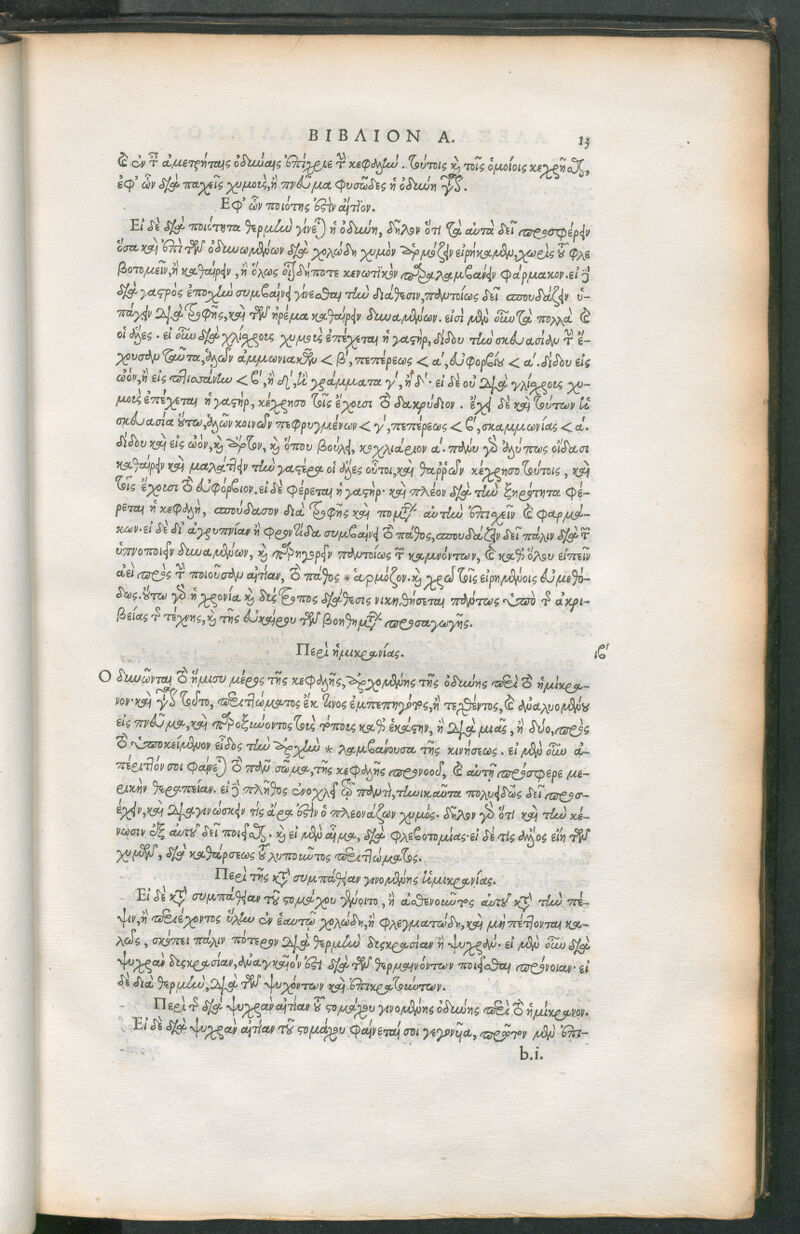 ΒΙΒΛΙΟΝ Α. 13
ἐν ταῖς ἀμετρήταις ὀδύναις ἐπίχριε τὴν κεφαλήν. τούτοις καὶ τοῖς ὁμοίοις κεχρῆσθαι,
ἐφ' ὧν διὰ παχεῖς χυμοὺς, ἢ πνεῦμα φυσῶδες ἡ ὀδύνη
Ἐφ' ὧν ποιότης ἐστὶν αἴτιον.
Εἰ δὲ διὰ ποιότητα θερμὴν γίνεται ἡ ὀδύνη, δῆλον ὅτι τὰ αὐτὰ δεῖ προσφέρειν
ὅσα καὶ ἐπὶ τῶν ὀδυνωμένων διὰ χολώδη χυμὸν ἁρμόζειν εἰρήκαμεν, χωρὶς τοῦ φλε
βοτομεῖν, ἢ καθαίρειν, ἢ ὅλως οἱονδήποτε κενωτικὸν παραλαμβάνειν φάρμακον. εἰ δὲ
διὰ γαστρὸς ἐποχὴν συμβαίνει γίνεσθαι τὴν διάθεσιν, παντοίως δεῖ σπουδάζειν ὑ-
πάγειν διὰ τροφῆς, καὶ τῶν ἠρέμα καθαίρειν δυναμένων. εἰσὶ μὲν οὖν τὰ πολλὰ καὶ
οἱ ἅλες. εἰ οὖν διὰ γλίσχρους χυμοὺς ἐπέχεται ἡ γαστὴρ, δίδου τὴν σκευασίαν τὴν ἔ-
χουσαν ταῦτα, ἁλῶν ἀμμωνιακῶν < β', πεπέρεως < α', εὐφορβίου < α'. δίδου εἰς
ὠὸν, ἢ εἰς πτισάνην γράμματα γ', ἢ δ'. εἰ δὲ οὐ διὰ γλίσχρους χυ-
μοὺς ἐπέχεται ἡ γαστὴρ, κέχρησο τοῖς ἔχουσι τὸ δακρύδιον. ἔχει δὲ καὶ τούτων ἡ
σκευασία οὕτω, ἁλῶν κοινῶν πεφρυγμένων < γ', πεπέρεως < β', σκαμμωνίας < α'.
δίδου καὶ εἰς ὠὸν, καὶ ἄρτον, καὶ ὅπου βούλει, κοχλιάριον α'. πάνυ γὰρ ἀλύπως οἴδασι
καθαίρειν καὶ μαλάττειν τὴν γαστέρα οἱ ἅλες οὗτοι, καὶ θαρρῶν κέχρησο τούτοις, καὶ
τοῖς ἔχουσι τὸ εὐφόρβιον. εἰ δὲ φέρεται ἡ γαστὴρ. καὶ πλέον διὰ τὴν ξηρότητα φέ-
ρεται ἡ κεφαλὴ, σπούδασον διὰ τροφῆς καὶ πομάτων αὐτὴν ἐπισχεῖν καὶ φαρμά-
κων. εἰ δὲ δι' ἀγρυπνίαν ἢ φροντίδα συμβαίνει τὸ πάθος, σπουδάζειν δεῖ πάλιν διὰ τῶν
ὑπνοποιεῖν δυναμένων, καὶ παρηγορεῖν παντοίως τοὺς κάμνοντας, καὶ καθόλου εἰπεῖν
ἀεὶ πρὸς τὴν ποιοῦσαν αἰτίαν, τὸ πάθος * ἁρμόζον. καὶ χρῶ τοῖς εἰρημένοις εὐμεθό-
δως. οὕτω γὰρ ἡ χρονία καὶ δύστροπος διάθεσις νικηθήσεται πάντως ὑπὸ τῆς ἀκρι-
βείας τῆς τέχνης, καὶ τῆς εὐκαίρου τῶν βοηθημάτων προσαγωγῆς.
Περὶ ἡμικρανίας. ιβ'
Ὀδυνῶνται τὸ ἥμισυ μέρος τῆς κεφαλῆς, ἀρχομένης τῆς ὀδύνης περὶ τὸ ἡμίκρα-
νον. καὶ τοῦτο, περιττώματος ἔκ τινος ἐμπεπηγότος, ἢ τερθέντος, καὶ ἀναλυομένου
εἰς πνεῦμα, καὶ παροξύνοντος τοὺς τόπους καθ' ἑκάστην, ἢ διὰ μιᾶς, ἢ δύο, πρὸς
τὸ ὑποκείμενον εἶδος τὴν ἀρχὴν * λαμβάνουσα τῆς κινήσεως. εἰ μὲν οὖν ἀ-
πέριττόν σοι φαίνεται τὸ πᾶν σῶμα, τῆς κεφαλῆς προνοοῦ, καὶ αὐτῇ πρόσφερε με-
ρικὴν θεραπείαν. εἰ δὲ πλῆθος ἐνοχλεῖ τῷ παντὶ, τηνικαῦτα πολυειδῶς δεῖ προσ-
έχειν, καὶ διαγινώσκειν τίς ἄρα ἐστὶν ὁ πλεονάζων χυμός. δῆλον γὰρ ὅτι καὶ τὴν κέ-
νωσιν ἐξ αὐτοῦ δεῖ ποιεῖσθαι. καὶ εἰ μὲν αἷμα, διὰ φλεβοτομίας. εἰ δὲ τις ἄλλος εἴη τῶν
χυμῶν, διὰ καθάρσεως τοῦ λυποῦντος περιττώματος.
Περὶ τῆς κατὰ συμπάθειαν γινομένης ἡμικρανίας.
Εἰ δὲ κατὰ συμπάθειαν τοῦ στομάχου γένοιτο, ἢ ἀσθενοῦντος αὐτοῦ κατὰ τὴν πέ-
ψιν, ἢ περιέχοντος ὕλην ἐν ἑαυτῷ χολώδη, ἢ φλεγματώδη, καὶ μὴ πέττονται κα-
λῶς, σκόπει πάλιν πότερον διὰ θερμὴν δυσκρασίαν ἢ ψυχράν. εἰ μὲν οὖν διὰ
ψυχρὰν δυσκρασίαν, ἀναγκαῖόν ἐστι διὰ τῶν θερμαινόντων ποιεῖσθαι πρόνοιαν. εἰ
δὲ διὰ θερμὴν, διὰ τῶν ψυχόντων καὶ ἐπικρατούντων.
Περὶ τῆς διὰ ψυχρὰν αἰτίαν τοῦ στομάχου γινομένης ὀδύνης περὶ τὸ ἡμίκρανον.
Εἰ δὲ διὰ ψυχρὰν αἰτίαν τοῦ στομάχου φαίνεταί σοι γεγονυῖα, πρῶτον μὲν ἐπι-
b.i.